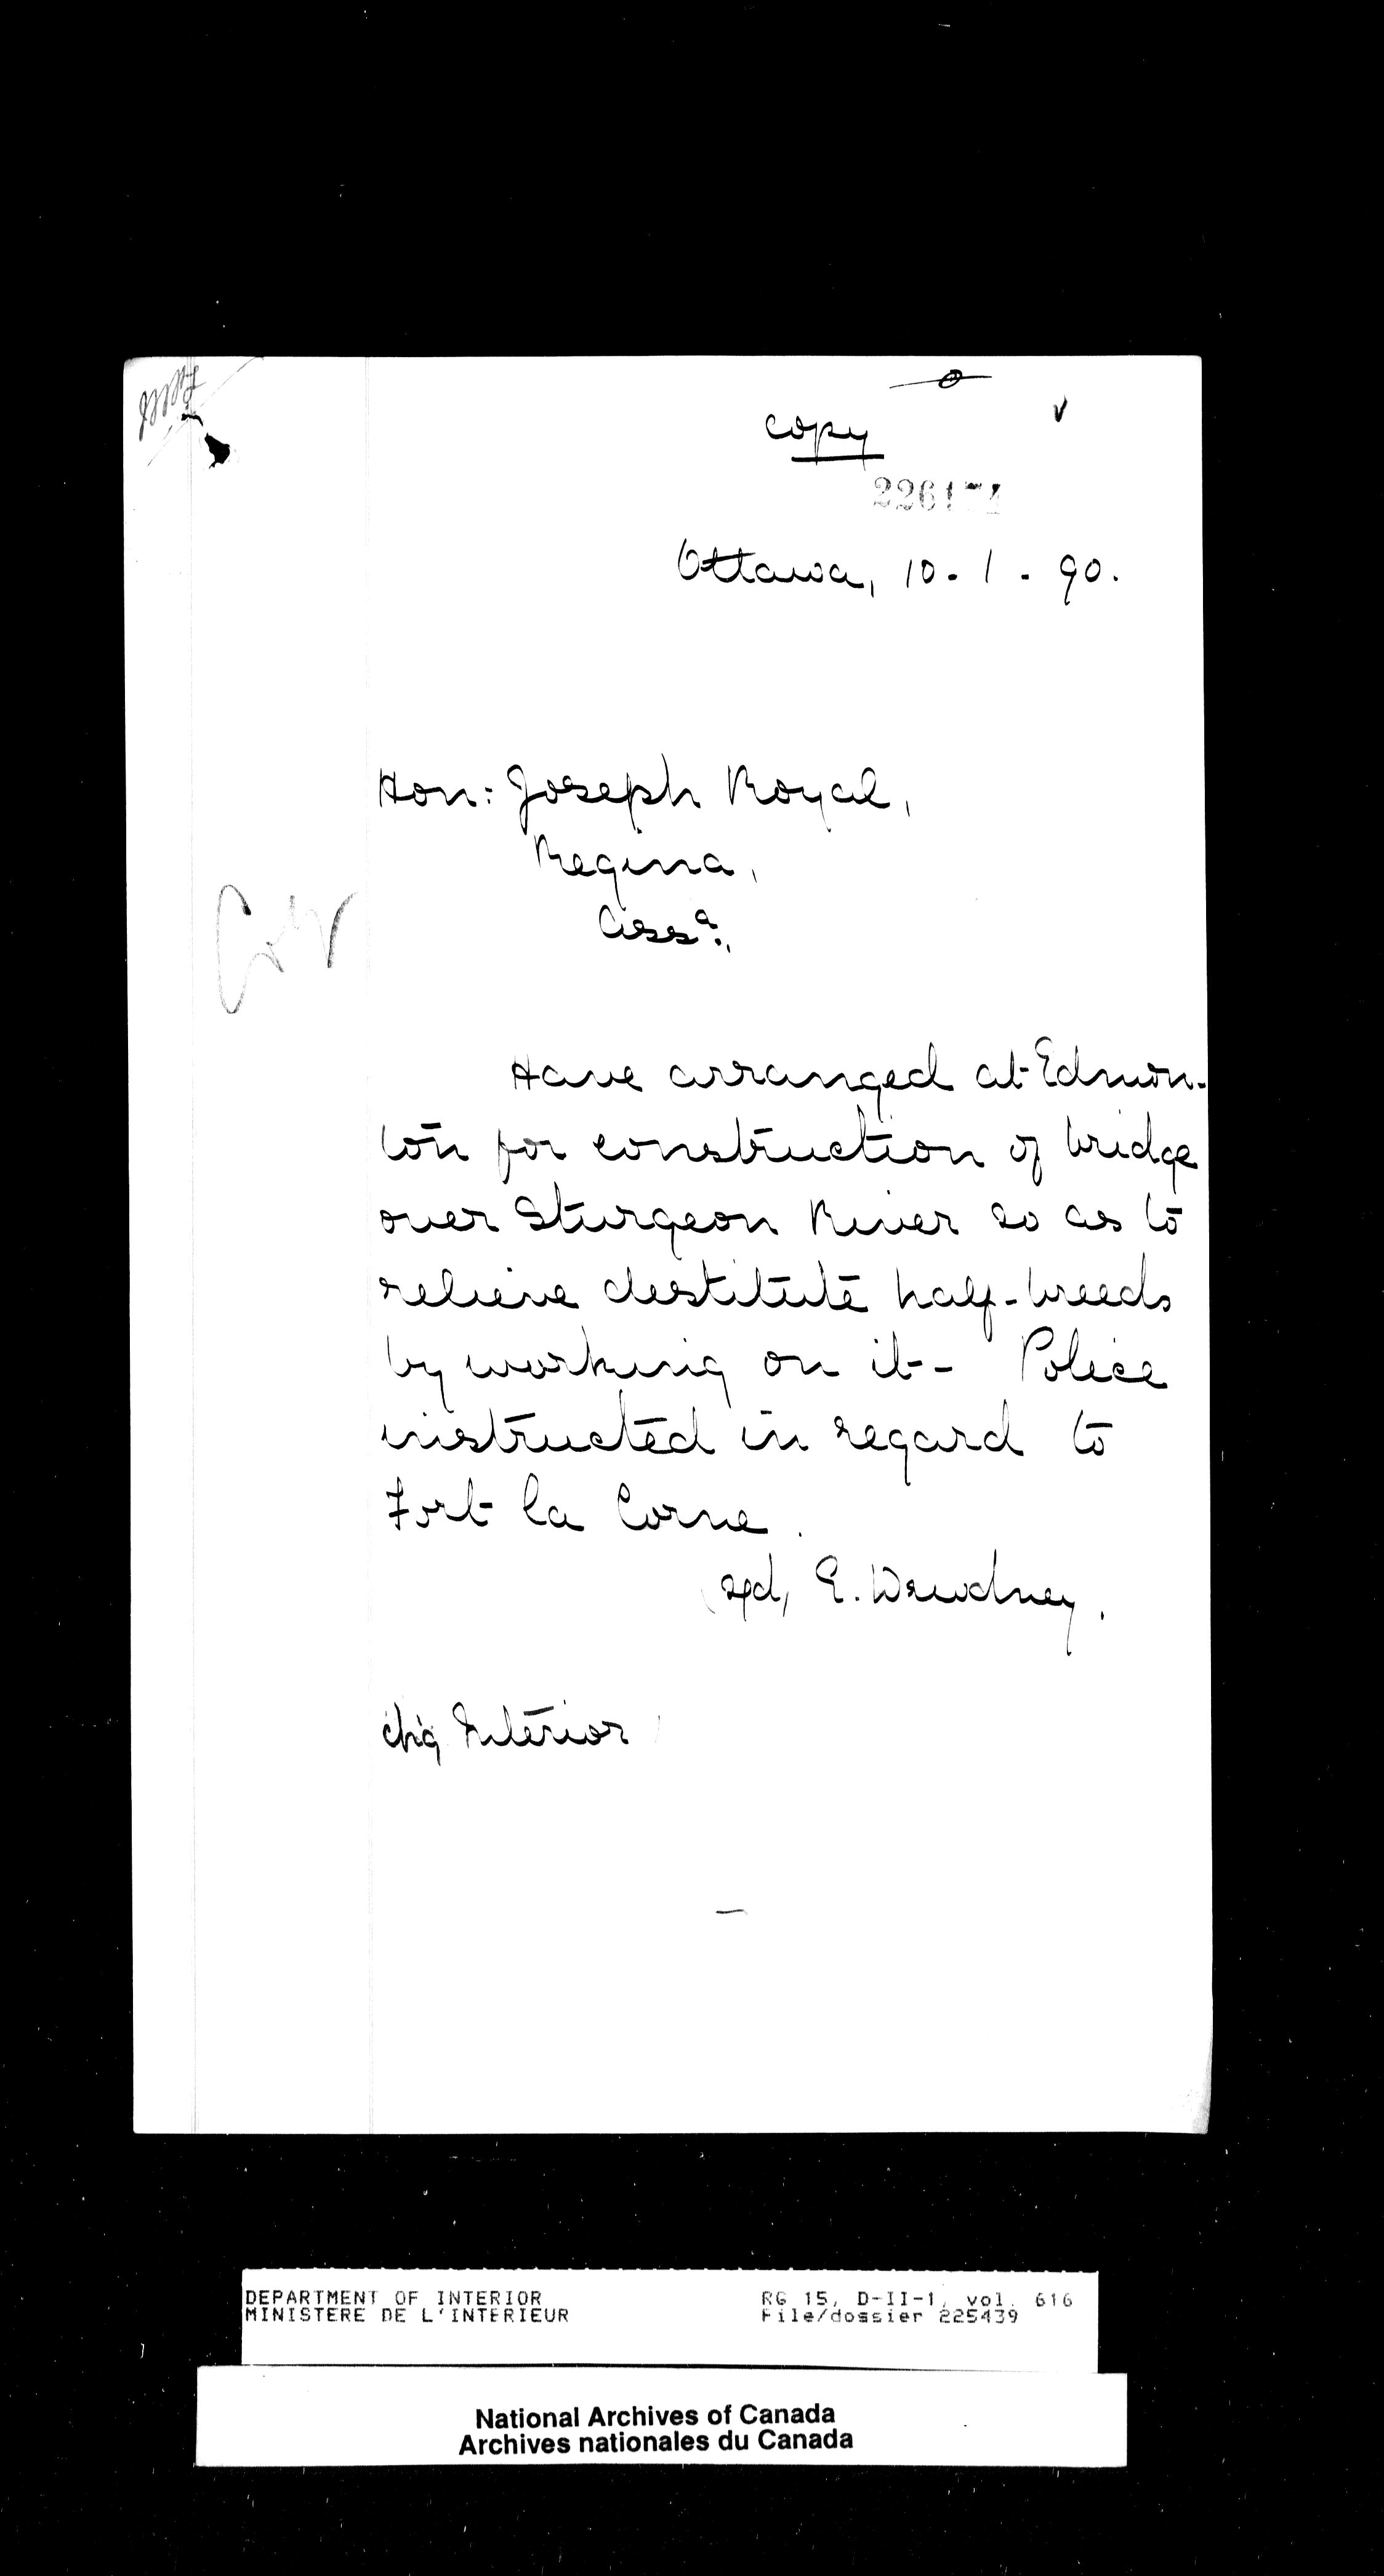 copy
Ottawa, 10. 1. 90.
Hon: Joseph Royal,
Regina,
Assa.,
Have arranged at Edmon-
ton for construction of bridge
over Sturgeon River so as to
relieve destitute half-breeds
by working on it- Police
instructed in regard to
Fort la Corne.
(sgd, E. Dewdney.
chg Interior
DEPARTMENT OF INTERIOR RG 15, D-II-1, vol. 616
MINISTERE DE L'INTERIEUR File/dossier 225439
National Archives of Canada
Archives nationales du Canada